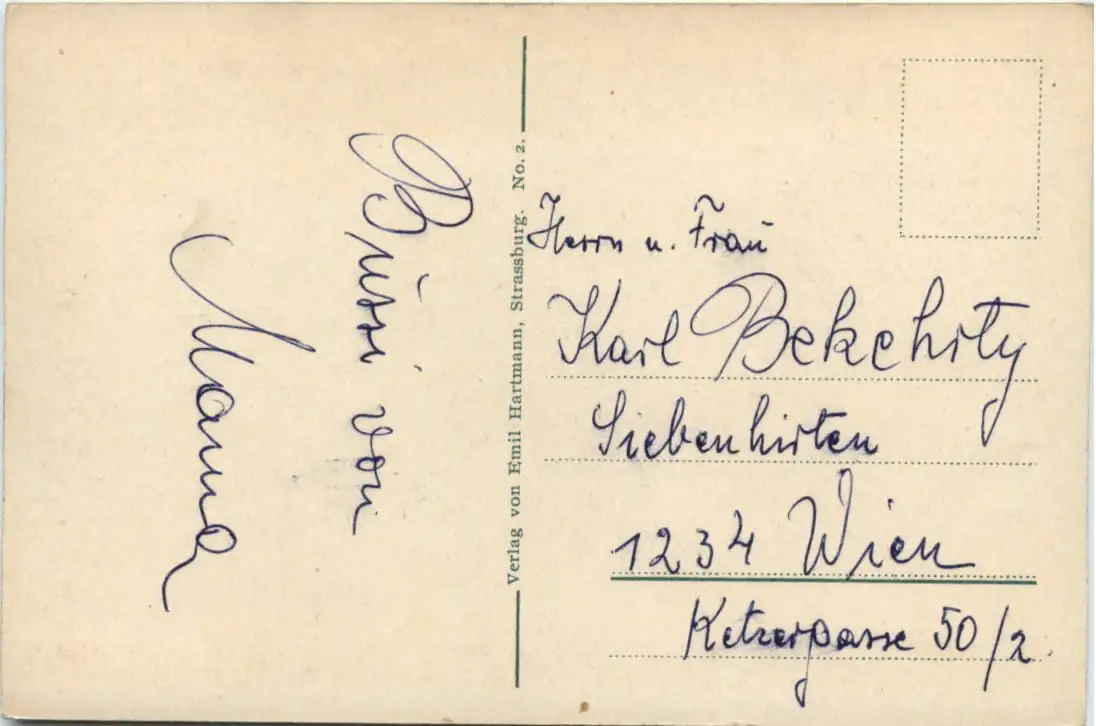 Bussi von
Mama
Verlag von Emil Hartmann, Strassburg. No. 2.
Herrn u. Frau
Karl Bekehrty
Siebenhirten
1234 Wien
Ketzergasse 50/2